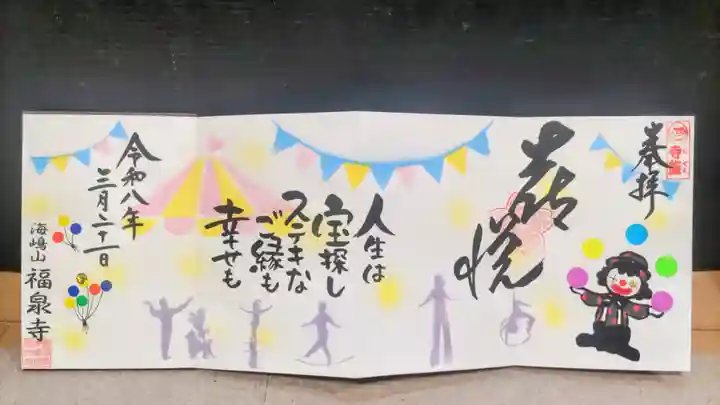 奉拝
喜悦
人生は
宝探し
ステキな
ご縁も
幸せも
令和八年
三月二十一日
海嶋山 福泉寺